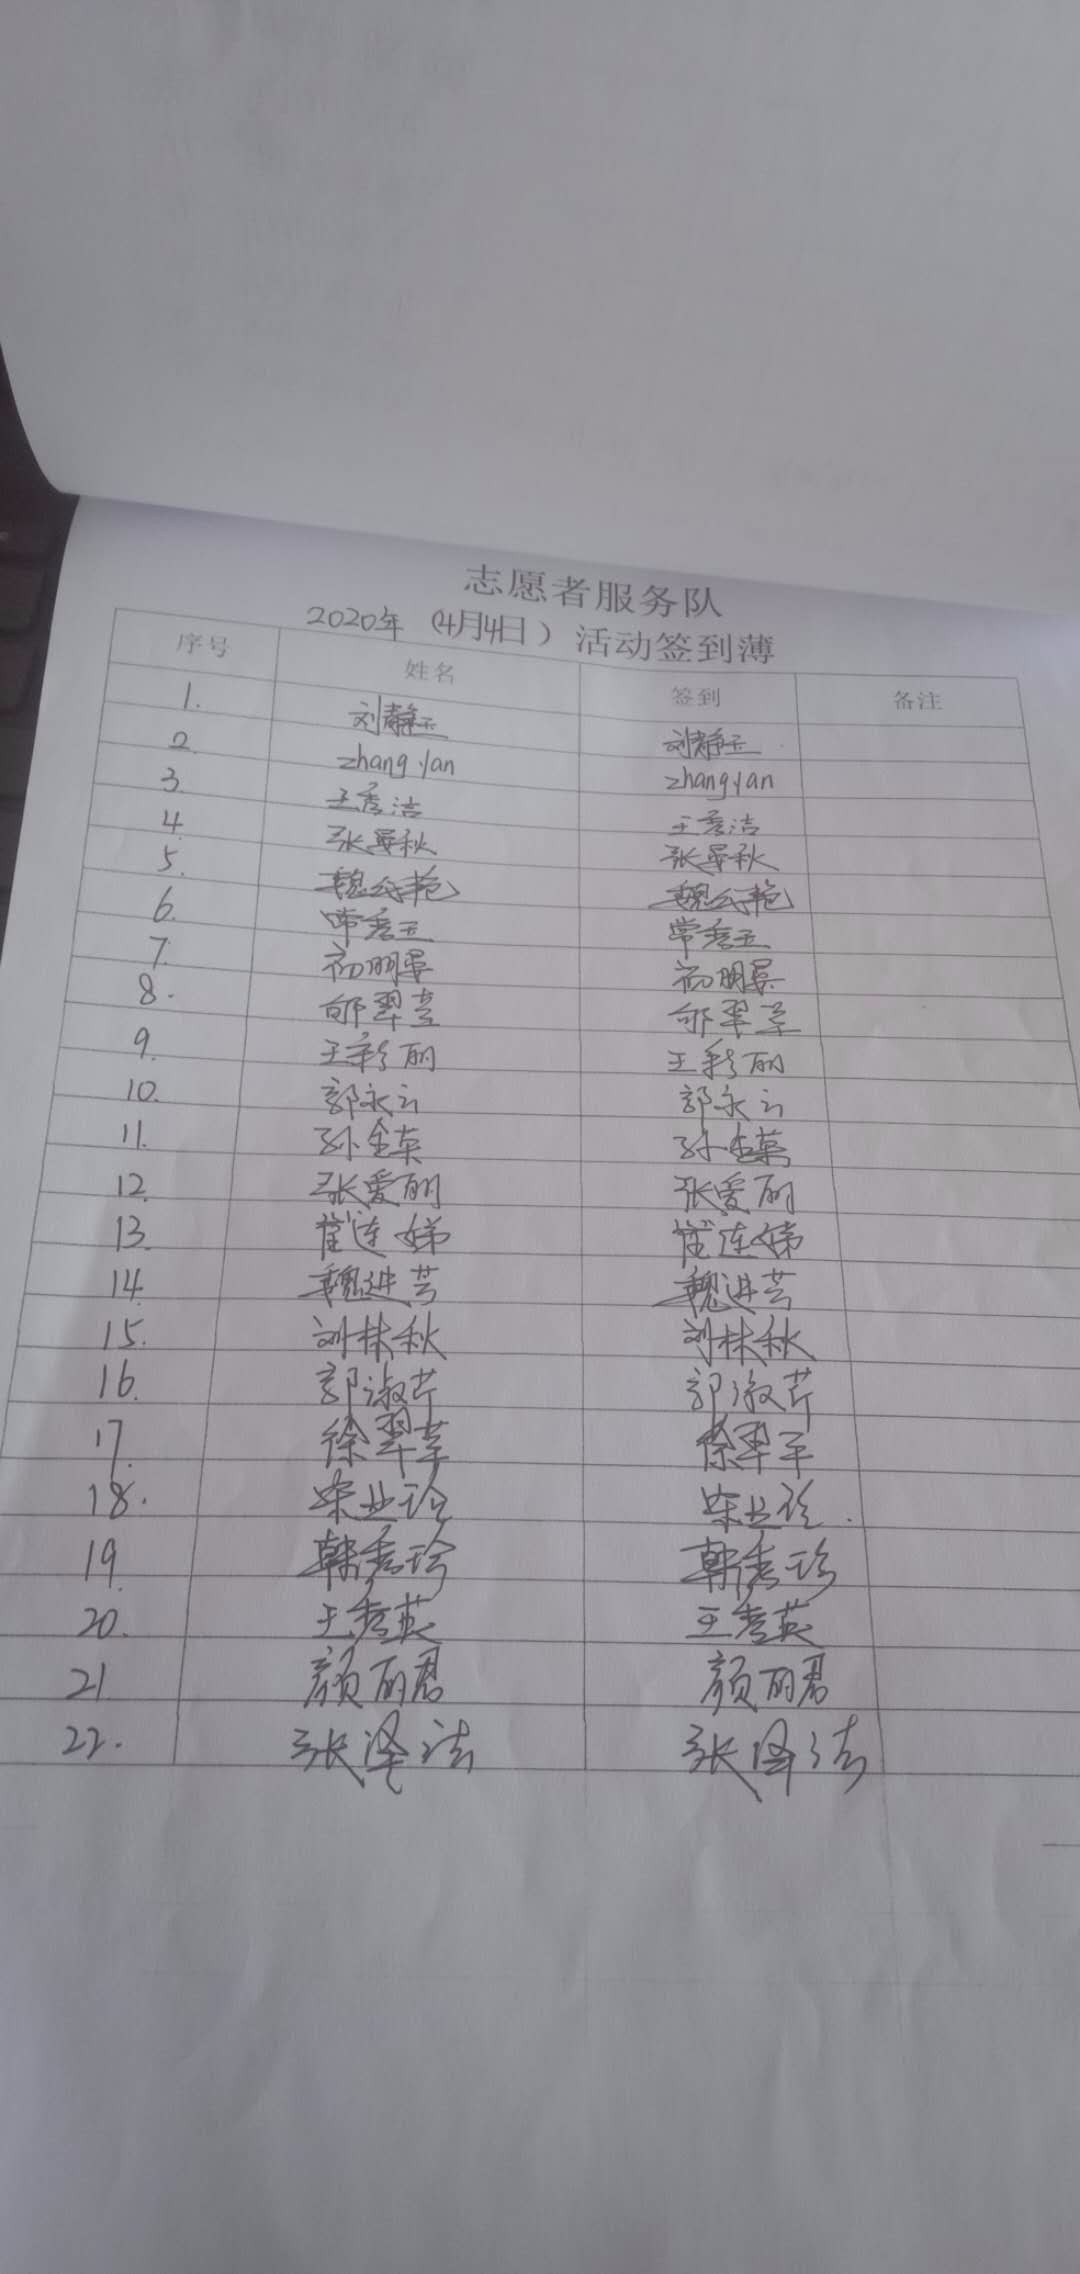 志愿者服务队
2020年（4月4日）活动签到薄
序号 姓名 签到 备注
1. 刘静玉 刘静玉
2. zhangyan zhangyan
3. 王秀洁 王秀洁
4. 张晏秋 张晏秋
5. 魏艳 魏艳
6. 常秀玉 常秀玉
7. 初明晏 初明晏
8. 邹翠 邹翠
9. 王彩丽 王彩丽
10. 郭永云 郭永云
11. 孙金荣 孙金荣
12. 张爱丽 张爱丽
13. 崔连娣 崔连娣
14. 魏进芸 魏进芸
15. 刘林秋 刘林秋
16. 郭淑芹 郭淑芹
17. 徐翠苹 徐翠平
18. 业珍 业珍
19. 韩秀珍 韩秀珍
20. 王秀英 王秀英
21 颜丽君 颜丽君
22. 张泽法 张泽法